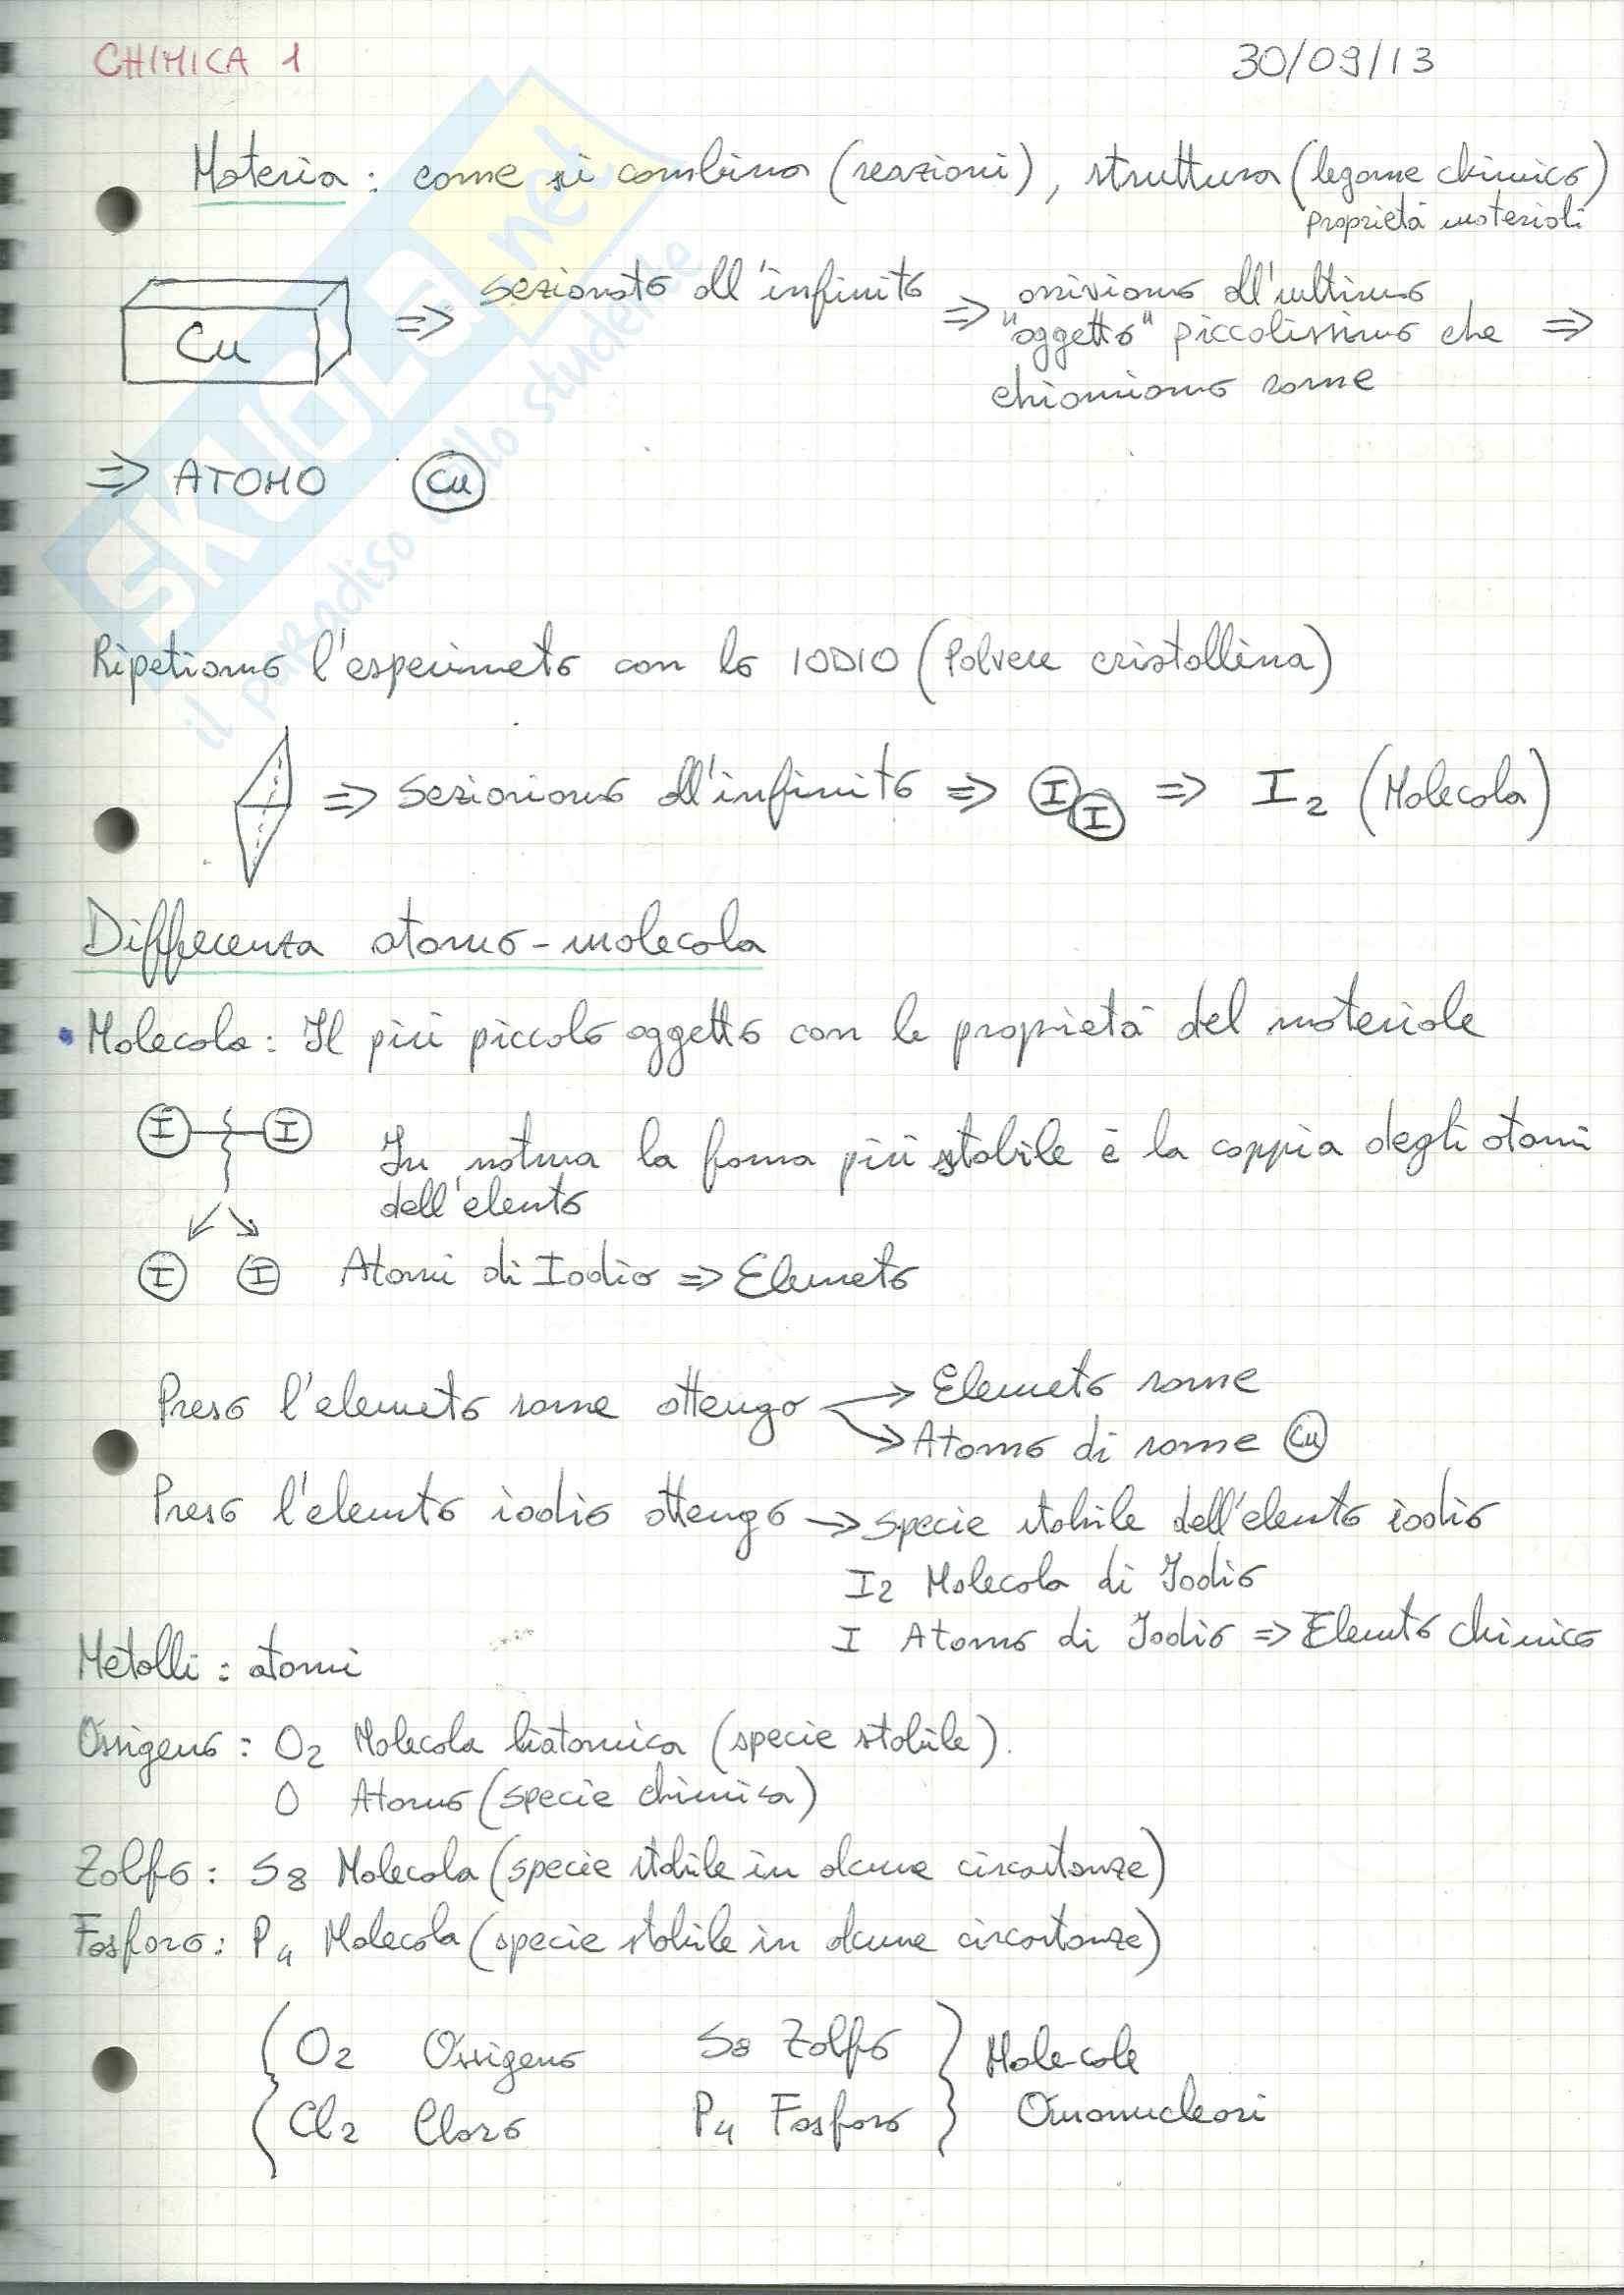 CHIMICA 1 30/09/13
Materia: come si combina (reazioni), struttura (legame chimico)
proprietà materiali
Cu => sezionato all'infinito => arriviamo all'ultimo
"oggetto" piccolissimo che =>
chiamiamo rame
=> ATOMO Cu
Ripetiamo l'esperimeto con lo IODIO (Polvere cristallina)
=> Sezioniamo all'infinito => I I => I2 (Molecola)
Differenza atomo-molecola
• Molecola: Il più piccolo oggetto con le proprietà del materiale
I I In natura la forma più stabile è la coppia degli atomi
dell'elento
I I Atomi di Iodio => Elemeto
Preso l'elemeto rame ottengo → Elemeto rame
→ Atomo di rame Cu
Preso l'elemto iodio ottengo → specie stabile dell'elemto iodio
I2 Molecola di Iodio
I Atomo di Iodio => Elemto chimico
Metalli: atomi
Ossigeno: O2 Molecola biatomica (specie stabile).
O Atomo (specie chimica)
Zolfo: S8 Molecola (specie stabile in alcune circostanze)
Fosforo: P4 Molecola (specie stabile in alcune circostanze)
O2 Ossigeno S8 Zolfo Molecole
Cl2 Cloro P4 Fosforo Omonucleari
SKUOLA.net
il paradiso dello studente